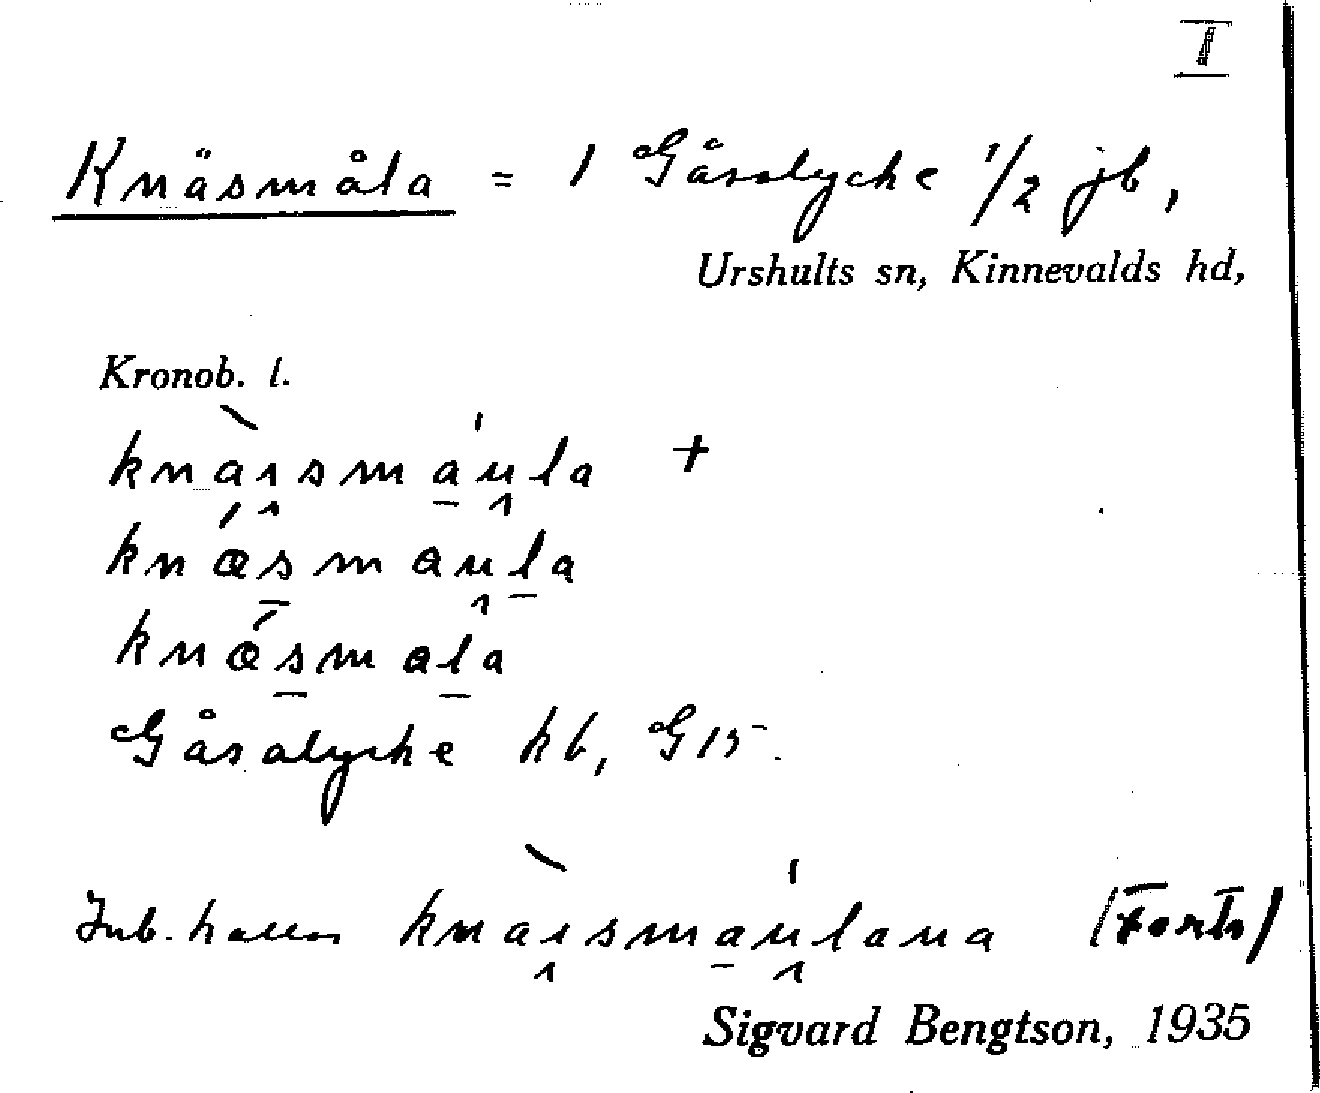 I
Knäsmåla = 1 Gåsalycke 1/2 jb,
Urshults sn, Kinnevalds hd,
Kronob. l.
knaismaula +
knæsmaula
knæsmala
Gåsalycke kb, G 15.
Inb. kallas knaismaulana (Forts)
Sigvard Bengtson, 1935